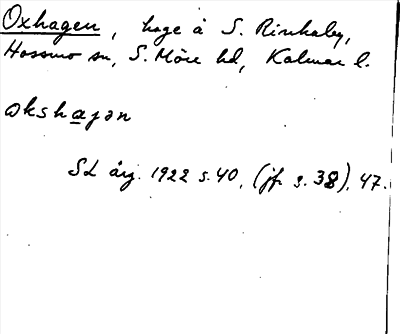 Oxhagen, hage å S. Rinkaby,
Hossmo sn, S. Möre hd, Kalmar l.
ωkshaɡən
SL årg. 1922 s. 40, (jf. s. 38), 47.